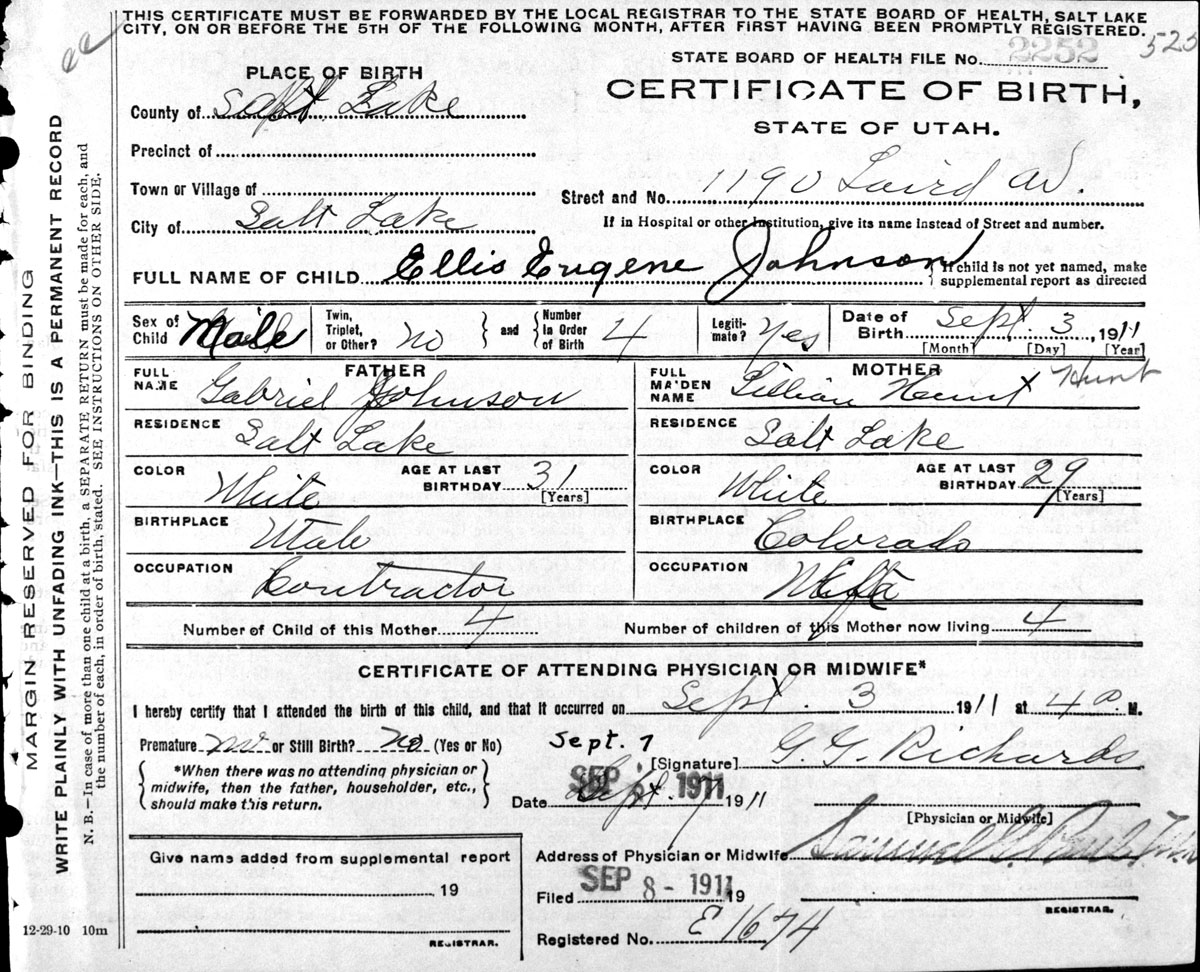 THIS CERTIFICATE MUST BE FORWARDED BY THE LOCAL REGISTRAR TO THE STATE BOARD OF HEALTH, SALT LAKE
CITY, ON OR BEFORE THE 5TH OF THE FOLLOWING MONTH, AFTER FIRST HAVING BEEN PROMPTLY REGISTERED.
523
STATE BOARD OF HEALTH FILE No. 2252
PLACE OF BIRTH
CERTIFICATE OF BIRTH,
STATE OF UTAH.
County of Salt Lake
Precinct of
Town or Village of
Street and No. 1190 Laird Av.
City of Salt Lake
If in Hospital or other Institution, give its name instead of Street and number.
FULL NAME OF CHILD Ellis Eugene Johnson
If child is not yet named, make
supplemental report as directed
Sex of Child Male
Twin, Triplet, or Other? no
and Number in Order of Birth 4
Legitimate? Yes
Date of Birth Sept. 3, 1911
[Month] [Day] [Year]
FATHER
FULL NAME Gabriel Johnson
RESIDENCE Salt Lake
COLOR White
AGE AT LAST BIRTHDAY 31
[Years]
BIRTHPLACE Utah
OCCUPATION Contractor
MOTHER
FULL MAIDEN NAME Lillian Hunt x Hunt
RESIDENCE Salt Lake
COLOR White
AGE AT LAST BIRTHDAY 29
[Years]
BIRTHPLACE Colorado
OCCUPATION Wife
Number of Child of this Mother 4
Number of children of this Mother now living 4
CERTIFICATE OF ATTENDING PHYSICIAN OR MIDWIFE*
I hereby certify that I attended the birth of this child, and that it occurred on Sept. 3 1911 at 4 a. M.
Premature no or Still Birth? no (Yes or No)
*When there was no attending physician or
midwife, then the father, householder, etc.,
should make this return.
Sept. 7
[Signature] G. G. Richards
SEP 1911
Date Sept. 7 1911
[Physician or Midwife]
Give name added from supplemental report
19
REGISTRAR.
Address of Physician or Midwife
Samuel G.
Filed SEP 8 - 1911 19
REGISTRAR.
Registered No. E 1674
12-29-10 10m
MARGIN RESERVED FOR BINDING
WRITE PLAINLY WITH UNFADING INK—THIS IS A PERMANENT RECORD
N. B.—In case of more than one child at a birth, a SEPARATE RETURN must be made for each, and
the number of each, in order of birth, stated. SEE INSTRUCTIONS ON OTHER SIDE.